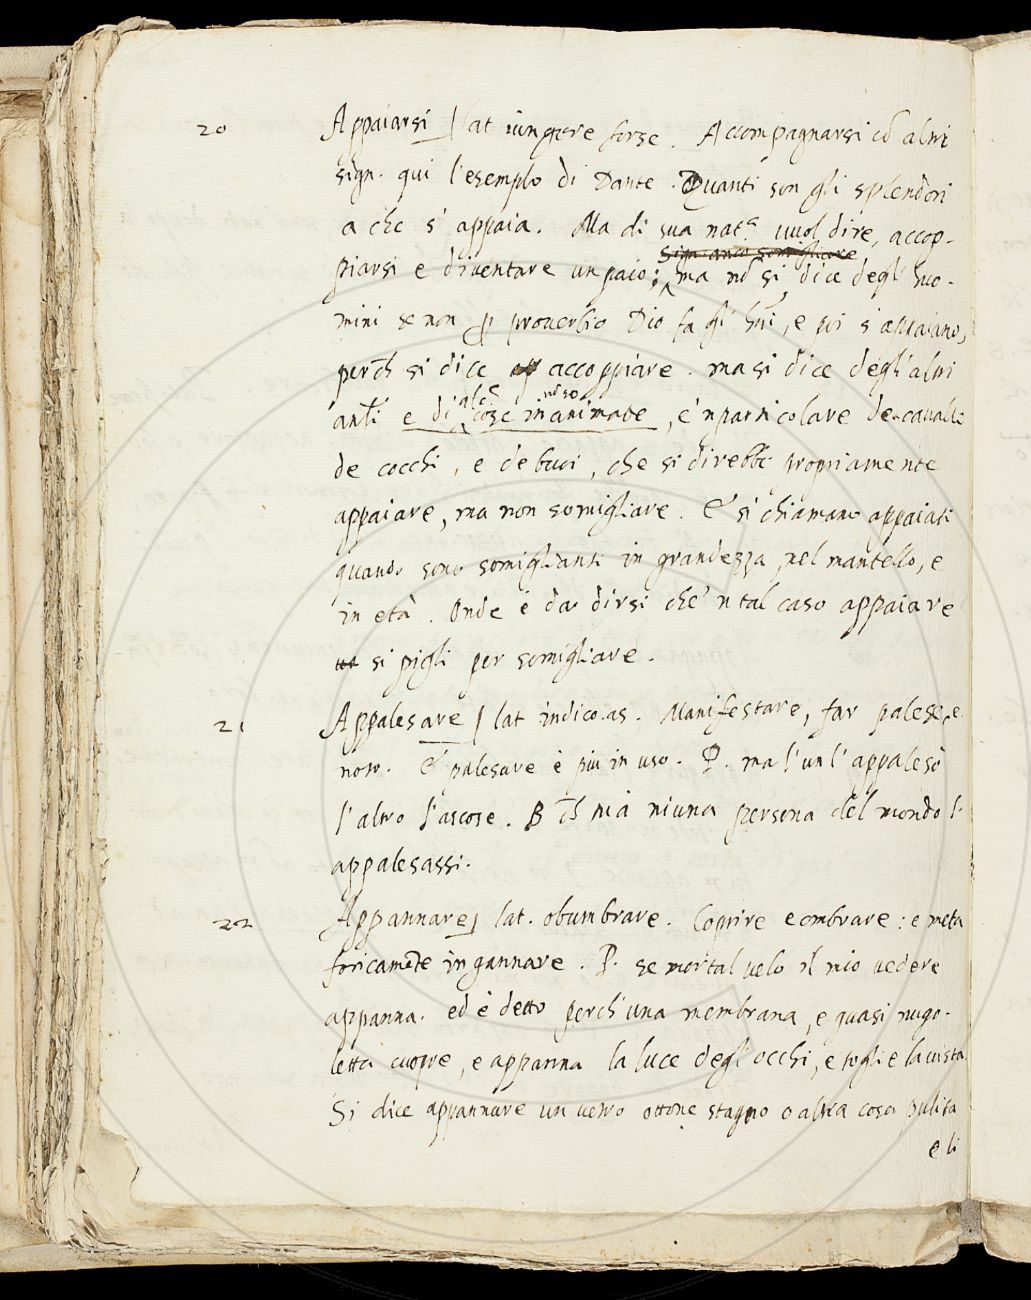 20 Appaiarsi / lat iungere forse. Accompagnarsi cō altri
sign. qui l'esemplo di Dante. Quanti son gli splendori
a che s'appaia. Ma di sua nat.ª vuol dire, accop-
sign. anco somigliare
piarsi e diventare un paio: ma nō si dice degl' huo-
mini se non ꝑ proverbio Dio fa gl' hūi, e poi s'appaiano,
perch̄ si dice accoppiare. ma si dice degl'altri
alc.e
anli e di cose inanimate, e'n particolare de cavalli
de cocchi, e de buoi, che si direbbe propriamente
appaiare, ma non somigliare. E' si chiamano appaiati
quando sono somiglianti in grandezza, nel mantello, e
in età. Onde è da dirsi che'n tal caso appaiare
si pigli per somigliare.
21 Appalesare / lat indico.as. Manifestare, far palese, e
noto. E' palesare è più in uso. P. ma l'un l'appalesò
l'altro l'ascose. B niuna persona del mondo l'
appalesassi.
22 Appannare / lat. obumbrare. Coprire e ombrare: e meta
foricamēte ingannare. P. se mortal velo il mio vedere
appanna. ed è detto perch'una membrana, e quasi nugo-
letta cuopre, e appanna la luce degl'occhi, e toglie la vista
Si dice appannare un vetro ottone stagno o altra cosa pulita
e li